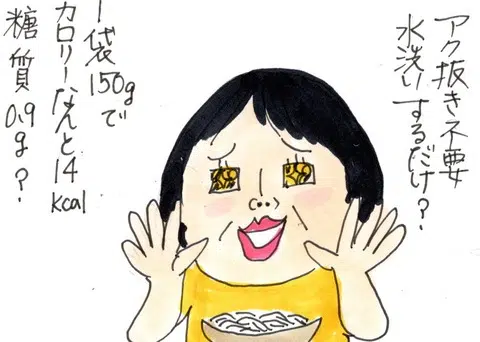 アク抜き不要
水洗いするだけ？
1袋150gで
カロリーなんと14kcal
糖質0.9g？